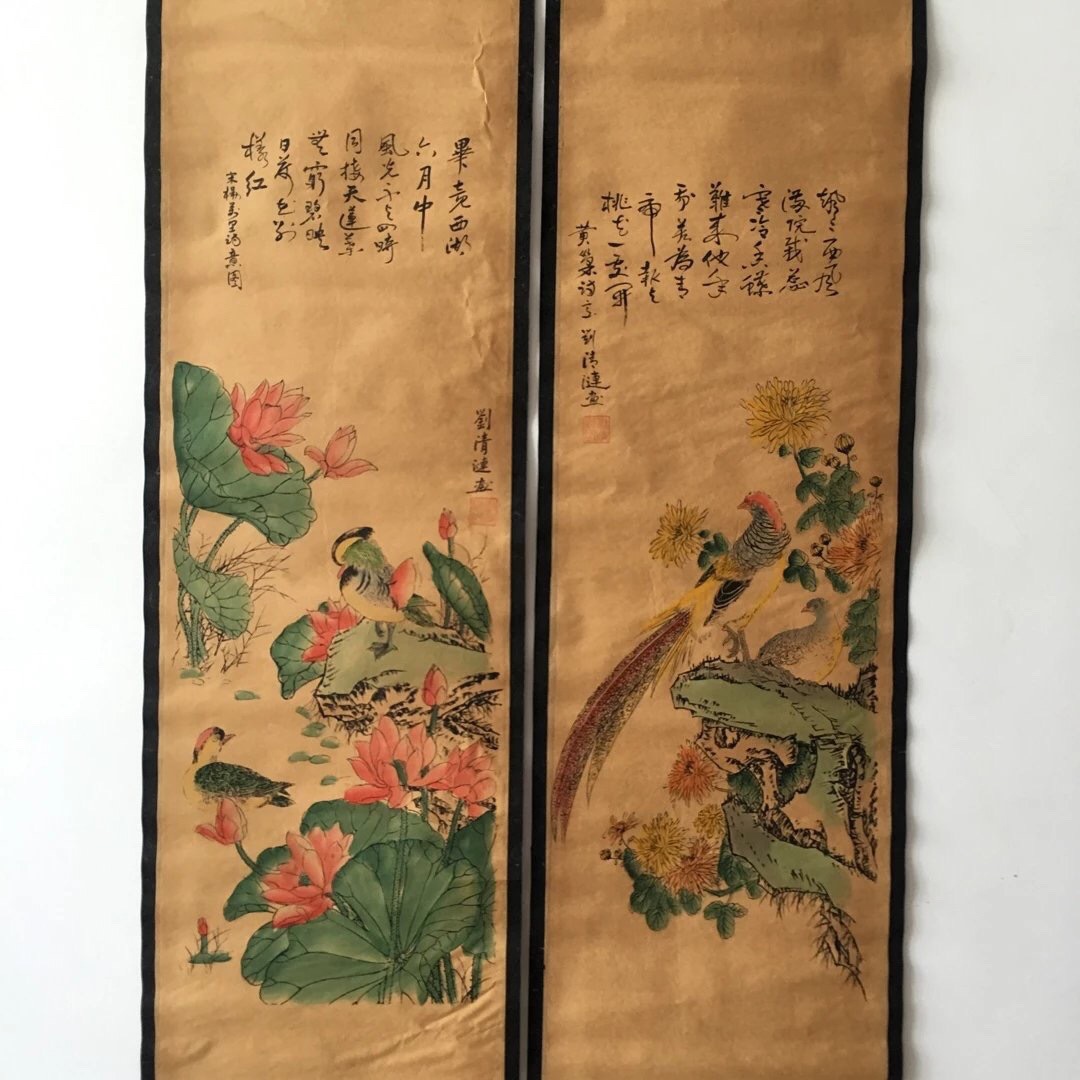 畢竟西湖
六月中
風光不與四時
同接天蓮葉
無窮碧映
日荷花別
樣紅
宋楊萬里詩意圖
劉清漣畫
颯颯西風
滿院栽蕊
寒冷香蝶
難來他年
我若為青
帝報與
桃花一處開
黄巢詩 劉清漣畫